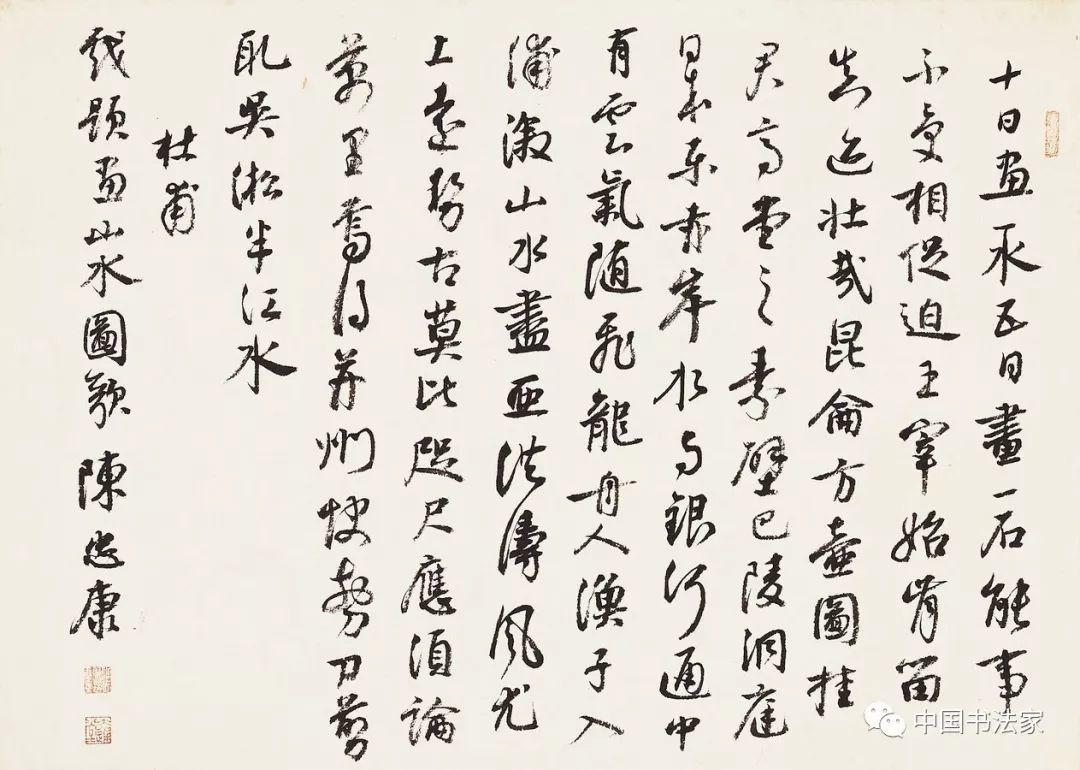 十日畫一水五日畫一石能事
不受相促迫王宰始肯留
真迹壯哉昆侖方壺圖挂
君高堂之素壁巴陵洞庭
日本東赤岸水与銀河通中
有雲氣随飛龍舟人漁子入
浦溆山水盡亞洪濤風尤
工遠勢古莫比咫尺應須論
萬里焉得并州快剪刀剪
取吳淞半江水
杜甫
戲題畫山水圖歌 陳忠康
中国书法家